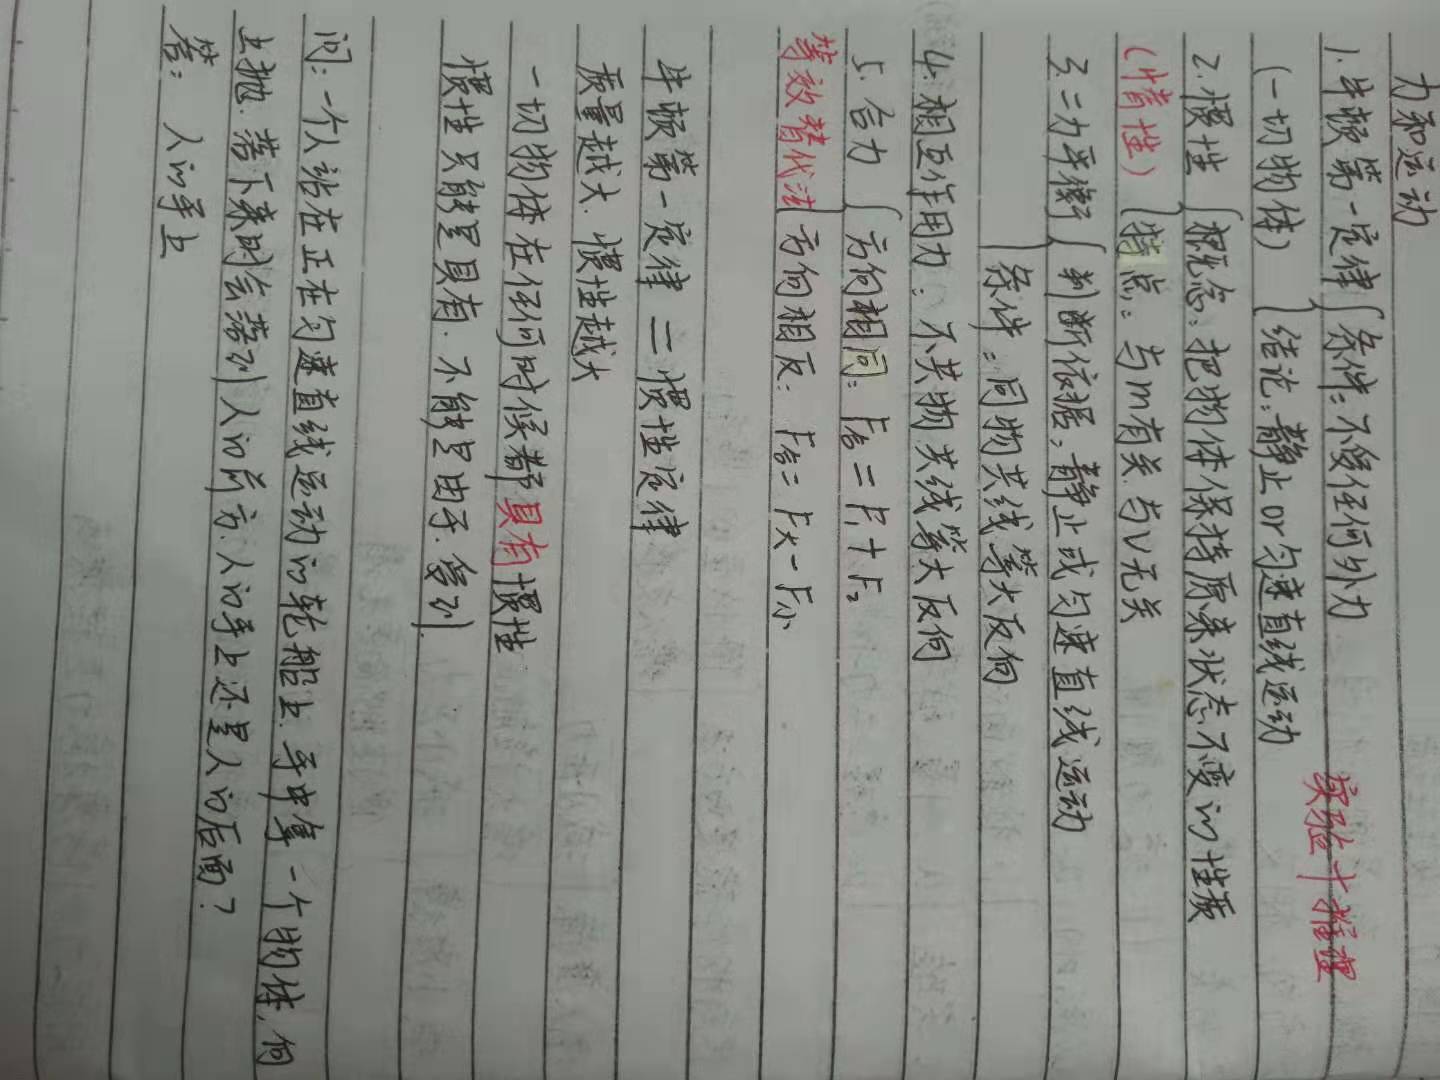 力和运动
1.牛顿第一定律{条件:不受任何外力
(一切物体) {结论:静止or匀速直线运动
实验+推理
2.惯性{概念:把物体保持原来状态不变的性质
(惰性){特点:与m有关.与v无关
3.二力平衡{判断依据:静止或匀速直线运动
条件:同物共线等大反向
4.相互作用力:不共物共线等大反向
5.合力{方向相同:F合=F₁+F₂
等效替代法{方向相反:F合=F大-F小
牛顿第一定律=惯性定律
质量越大.惯性越大
一切物体在任何时候都具有惯性
惯性只能是具有.不能是由于.受到.
问:一个人站在正在匀速直线运动的轮船上.手中拿一个物体,向
上抛.落下来时会落到人的前方.人的手上还是人的后面?
答:人的手上